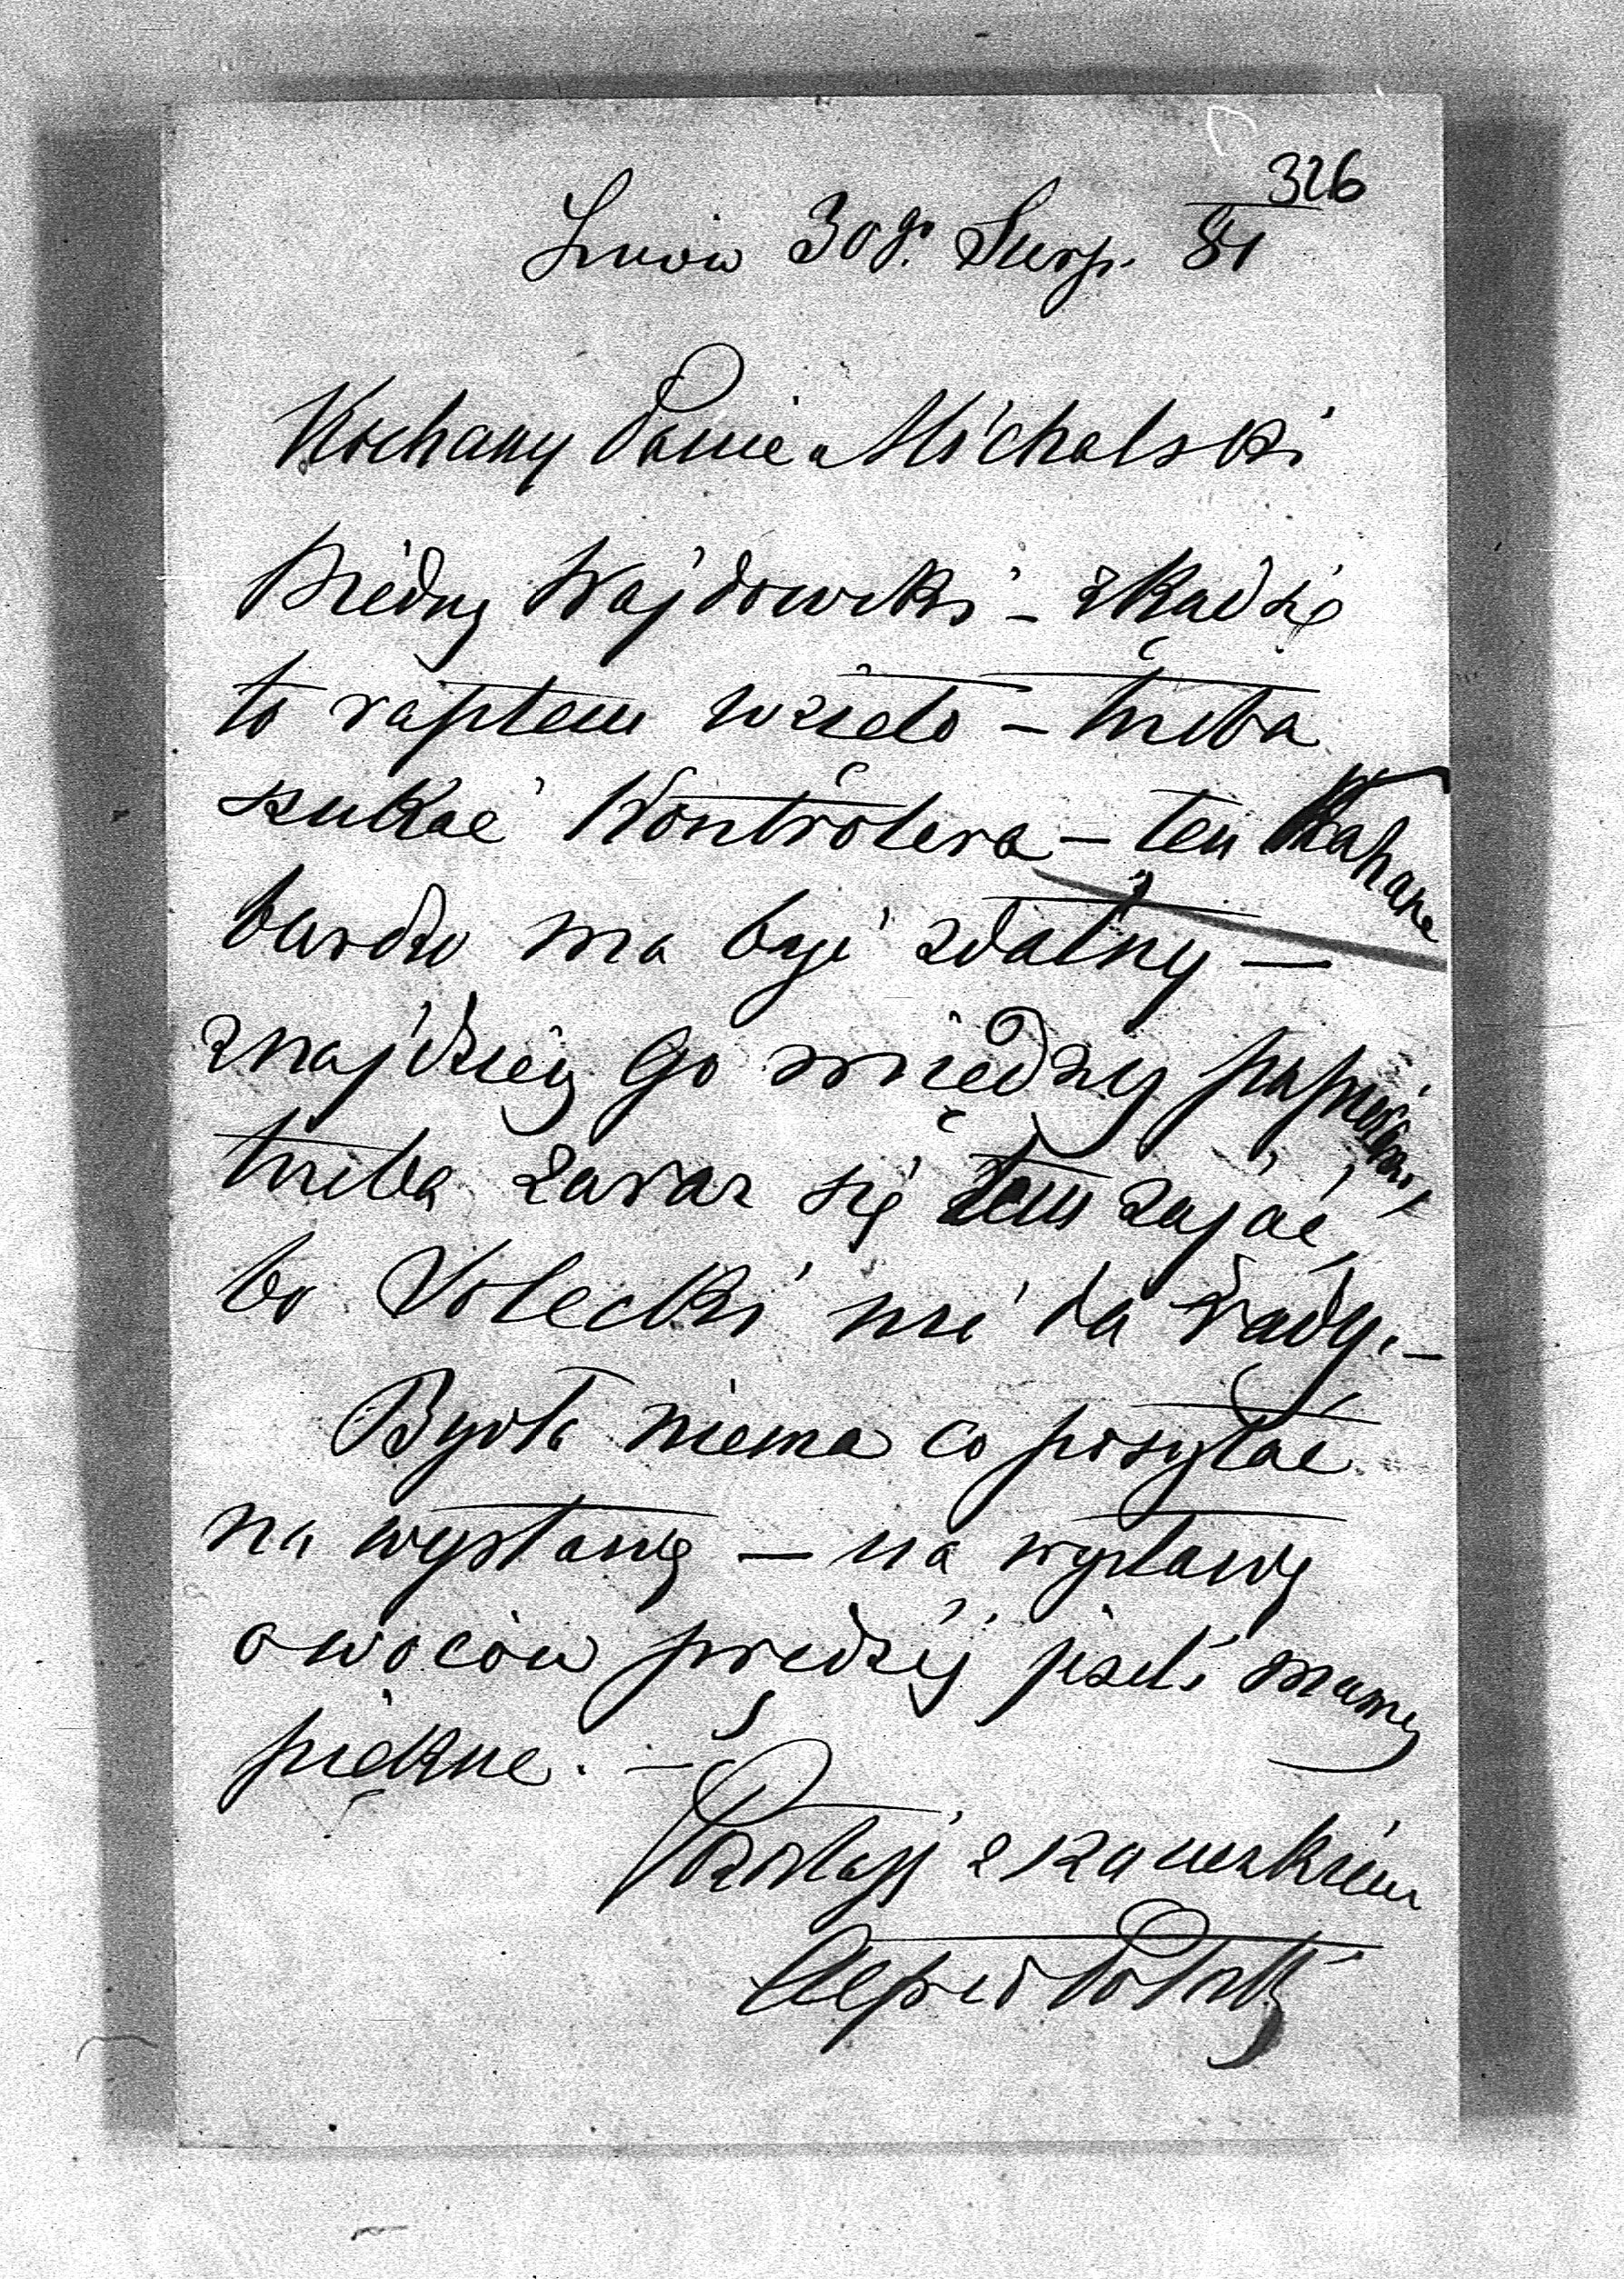 326
Lwów 30go Sierp. 81
Kochany Panie Michalski
Biedny Wajdowski – zkąd się
to raptem wzięło – trzeba
szukać Kontrolera – ten Kahane
bardzo ma być zdatny –
znajdziesz go między papierami
trzeba zaraz się tem zająć,
bo Solecki nie da rady. –
Bydła niema co posyłać
na wystawę – na wystawę
owoców prędzej jeżeli mamy
piękne. –
Zostaję z szacunkiem
Alfred Potocki